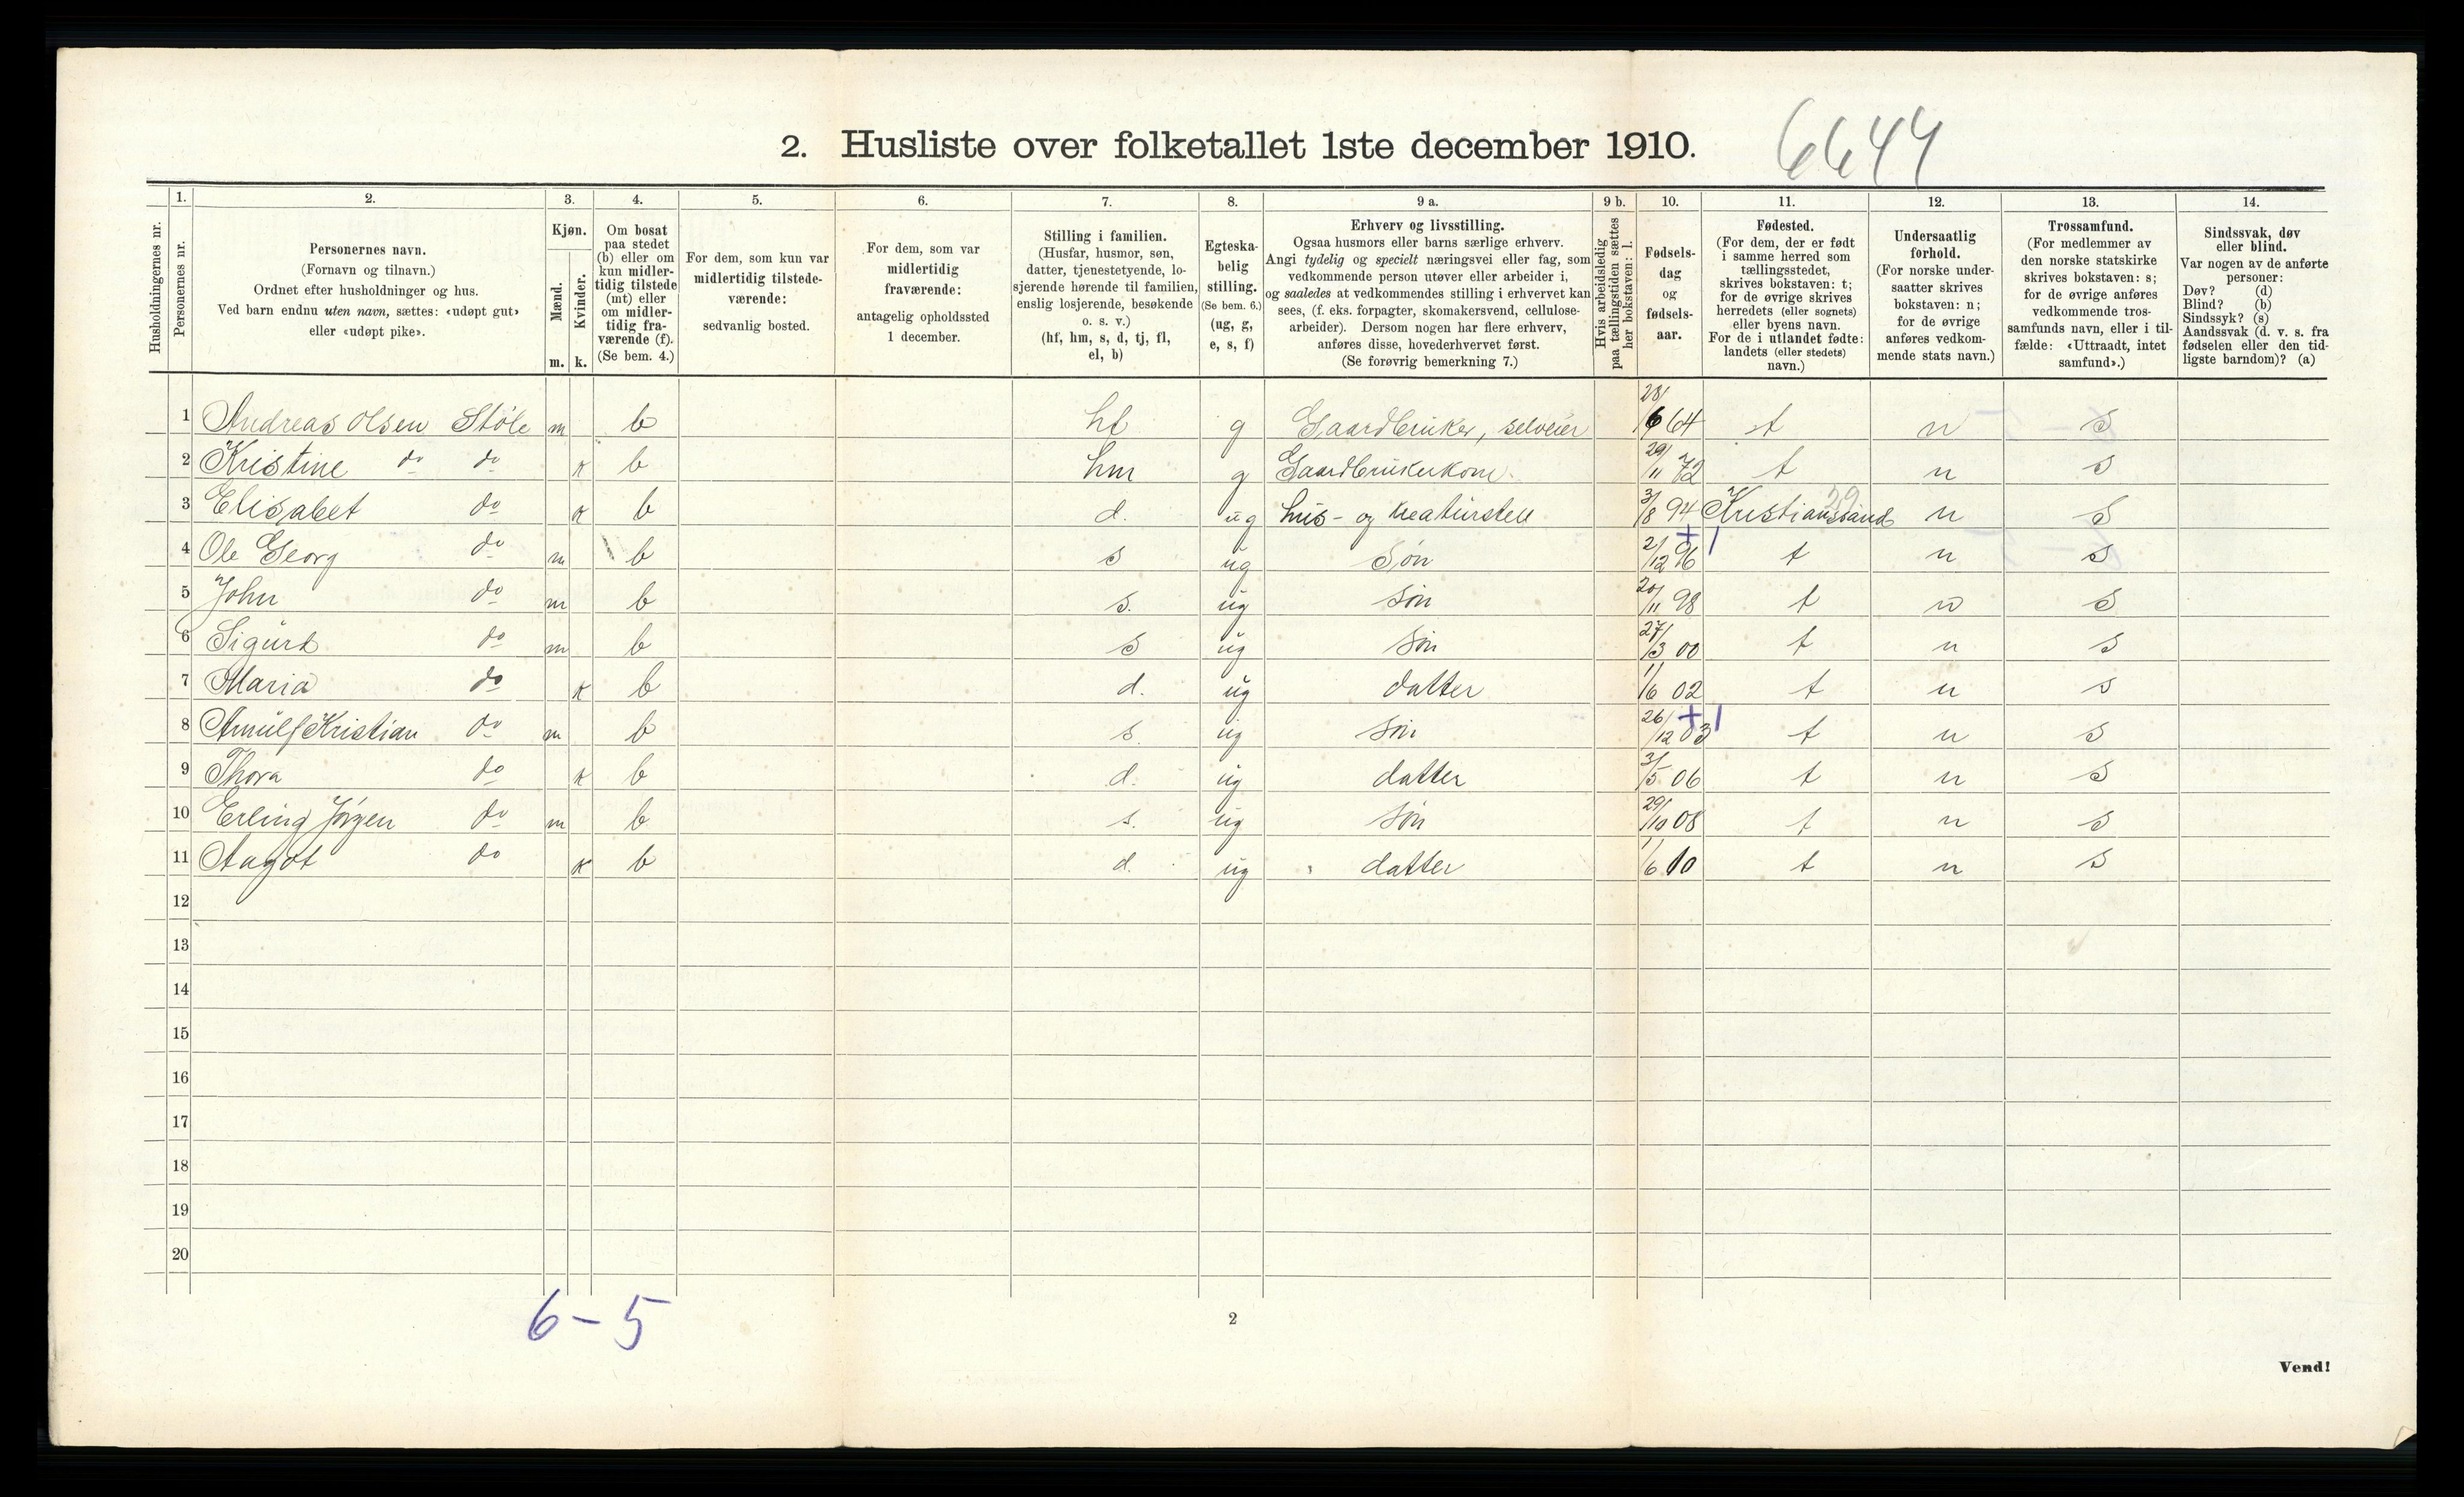 2. Husliste over folketallet 1ste december 1910. 6644
Husholdningernes nr.
1. Personernes nr.
2. Personernes navn.
(Fornavn og tilnavn.)
Ordnet efter husholdninger og hus.
Ved barn endnu uten navn, sættes: «udøpt gut»
eller «udøpt pike».
3. Kjøn.
Mænd. m.
Kvinder. k.
4. Om bosat
paa stedet
(b) eller om
kun midler-
tidig tilstede
(mt) eller
om midler-
tidig fra-
værende (f).
(Se bem. 4.)
5. For dem, som kun var
midlertidig tilstede-
værende:
sedvanlig bosted.
6. For dem, som var
midlertidig
fraværende:
antagelig opholdssted
1 december.
7. Stilling i familien.
(Husfar, husmor, søn,
datter, tjenestetyende, lo-
sjerende hørende til familien,
enslig losjerende, besøkende
o. s. v.)
(hf, hm, s, d, tj, fl,
el, b)
8. Egteska-
belig
stilling.
(Se bem. 6.)
(ug, g,
e, s, f)
9 a. Erhverv og livsstilling.
Ogsaa husmors eller barns særlige erhverv.
Angi tydelig og specielt næringsvei eller fag, som
vedkommende person utøver eller arbeider i,
og saaledes at vedkommendes stilling i erhvervet kan
sees, (f. eks. forpagter, skomakersvend, cellulose-
arbeider). Dersom nogen har flere erhverv,
anføres disse, hovederhvervet først.
(Se forøvrig bemerkning 7.)
9 b. Hvis arbeidsledig
paa tællingstiden sættes
her bokstaven: l.
10. Fødsels-
dag
og
fødsels-
aar.
11. Fødested.
(For dem, der er født
i samme herred som
tællingsstedet,
skrives bokstaven: t;
for de øvrige skrives
herredets (eller sognets)
eller byens navn.
For de i utlandet fødte:
landets (eller stedets)
navn.)
12. Undersaatlig
forhold.
(For norske under-
saatter skrives
bokstaven: n;
for de øvrige
anføres vedkom-
mende stats navn.)
13. Trossamfund.
(For medlemmer av
den norske statskirke
skrives bokstaven: s;
for de øvrige anføres
vedkommende tros-
samfunds navn, eller i til-
fælde: «Uttraadt, intet
samfund».)
14. Sindssvak, døv
eller blind.
Var nogen av de anførte
personer:
Døv? (d)
Blind? (b)
Sindssyk? (s)
Aandssvak (d. v. s. fra
fødselen eller den tid-
ligste barndom)? (a)
1 Andreas Olsen Støle m b hf g Gaardbruker, selveier 28/6 64 t n s
2 Kristine do do k b hm g Gaardbrukerkone 29/11 72 t n s
3 Elisabet do k b d. ug hus- og kreaturstell 3/8 94 Kristianssand 29 n s
4 Ole Georg do m b s ug Søn 2/12 96 + 1 t n s
5 John do m b s. ug søn 20/11 98 t n s
6 Sigurd do m b s ug søn 27/3 00 t n s
7 Maria do k b d. ug datter 1/6 02 t n s
8 Arnulf Kristian do m b s. ug søn 26/12 03 + 1 t n s
9 Thora do k b d. ug datter 3/5 06 t n s
10 Erling Jörgen do m b s. ug søn 29/10 08 t n s
11 Aagot do k b d. ug datter 1/6 10 t n s
12
13
14
15
16
17
18
19
20
6-5
2
Vend!